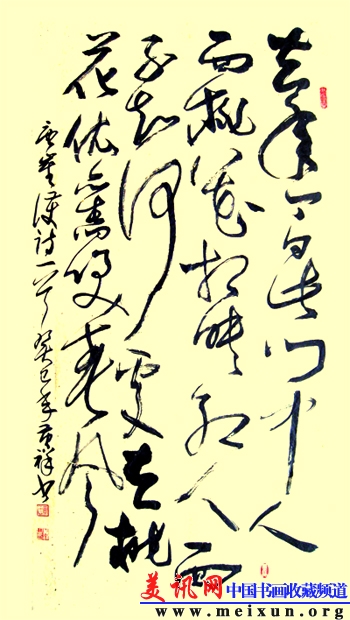 去年今日此門中人
面桃花相映紅人面
不知何處去桃
花依舊笑春風
唐崔護詩一首癸巳年祥书
美讯网 中国书画收藏频道
www.meixun.org